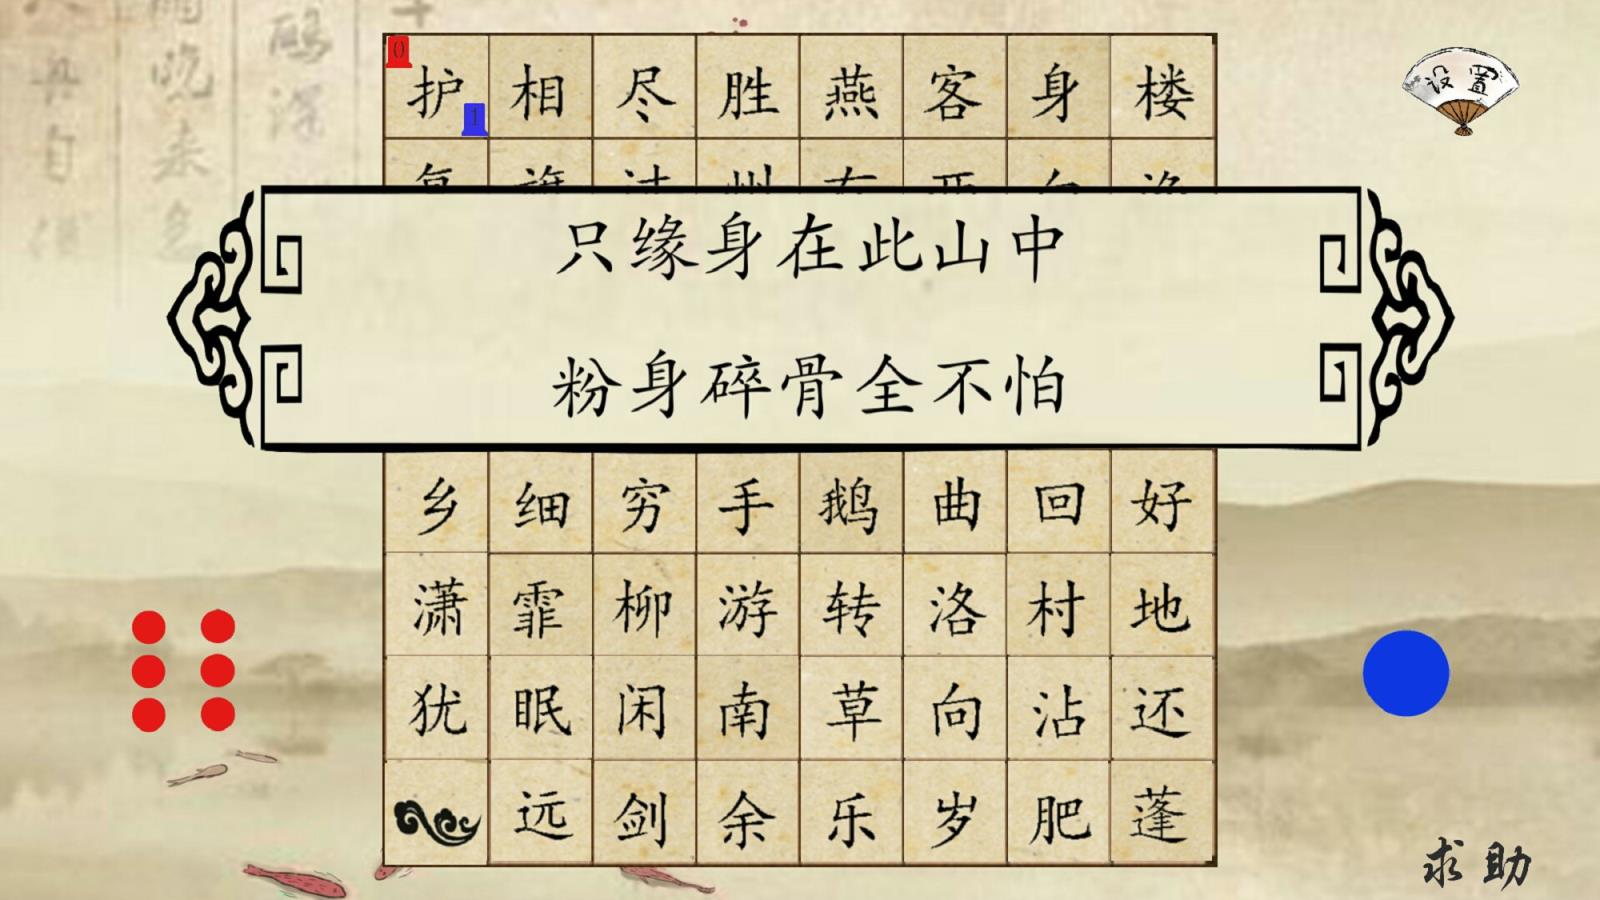 0
护 相 尽 胜 燕 客 身 楼
1
设置
只缘身在此山中
粉身碎骨全不怕
乡 细 穷 手 鹅 曲 回 好
潇 霏 柳 游 转 洛 村 地
犹 眠 闲 南 草 向 沾 还
远 剑 余 乐 岁 肥 蓬
求助